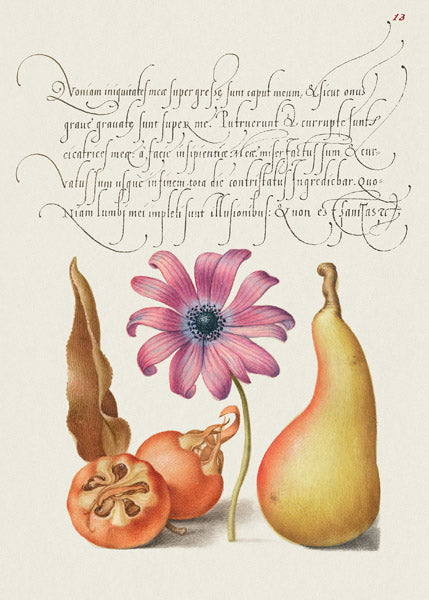 13
Quoniam iniquitates meæ supergressę sunt caput meum, & sicut onus
graue grauatę sunt super me. Putruerunt & corruptę sunt
cicatrices meæ: à facie insipientiæ Meæ. miser factus sum & cur-
Vatus sum usque in finem. tota die contristatus Ingrediebar. Quo-
Niam lumbi mei impleti sunt illusionibus: & non est sanitas &c